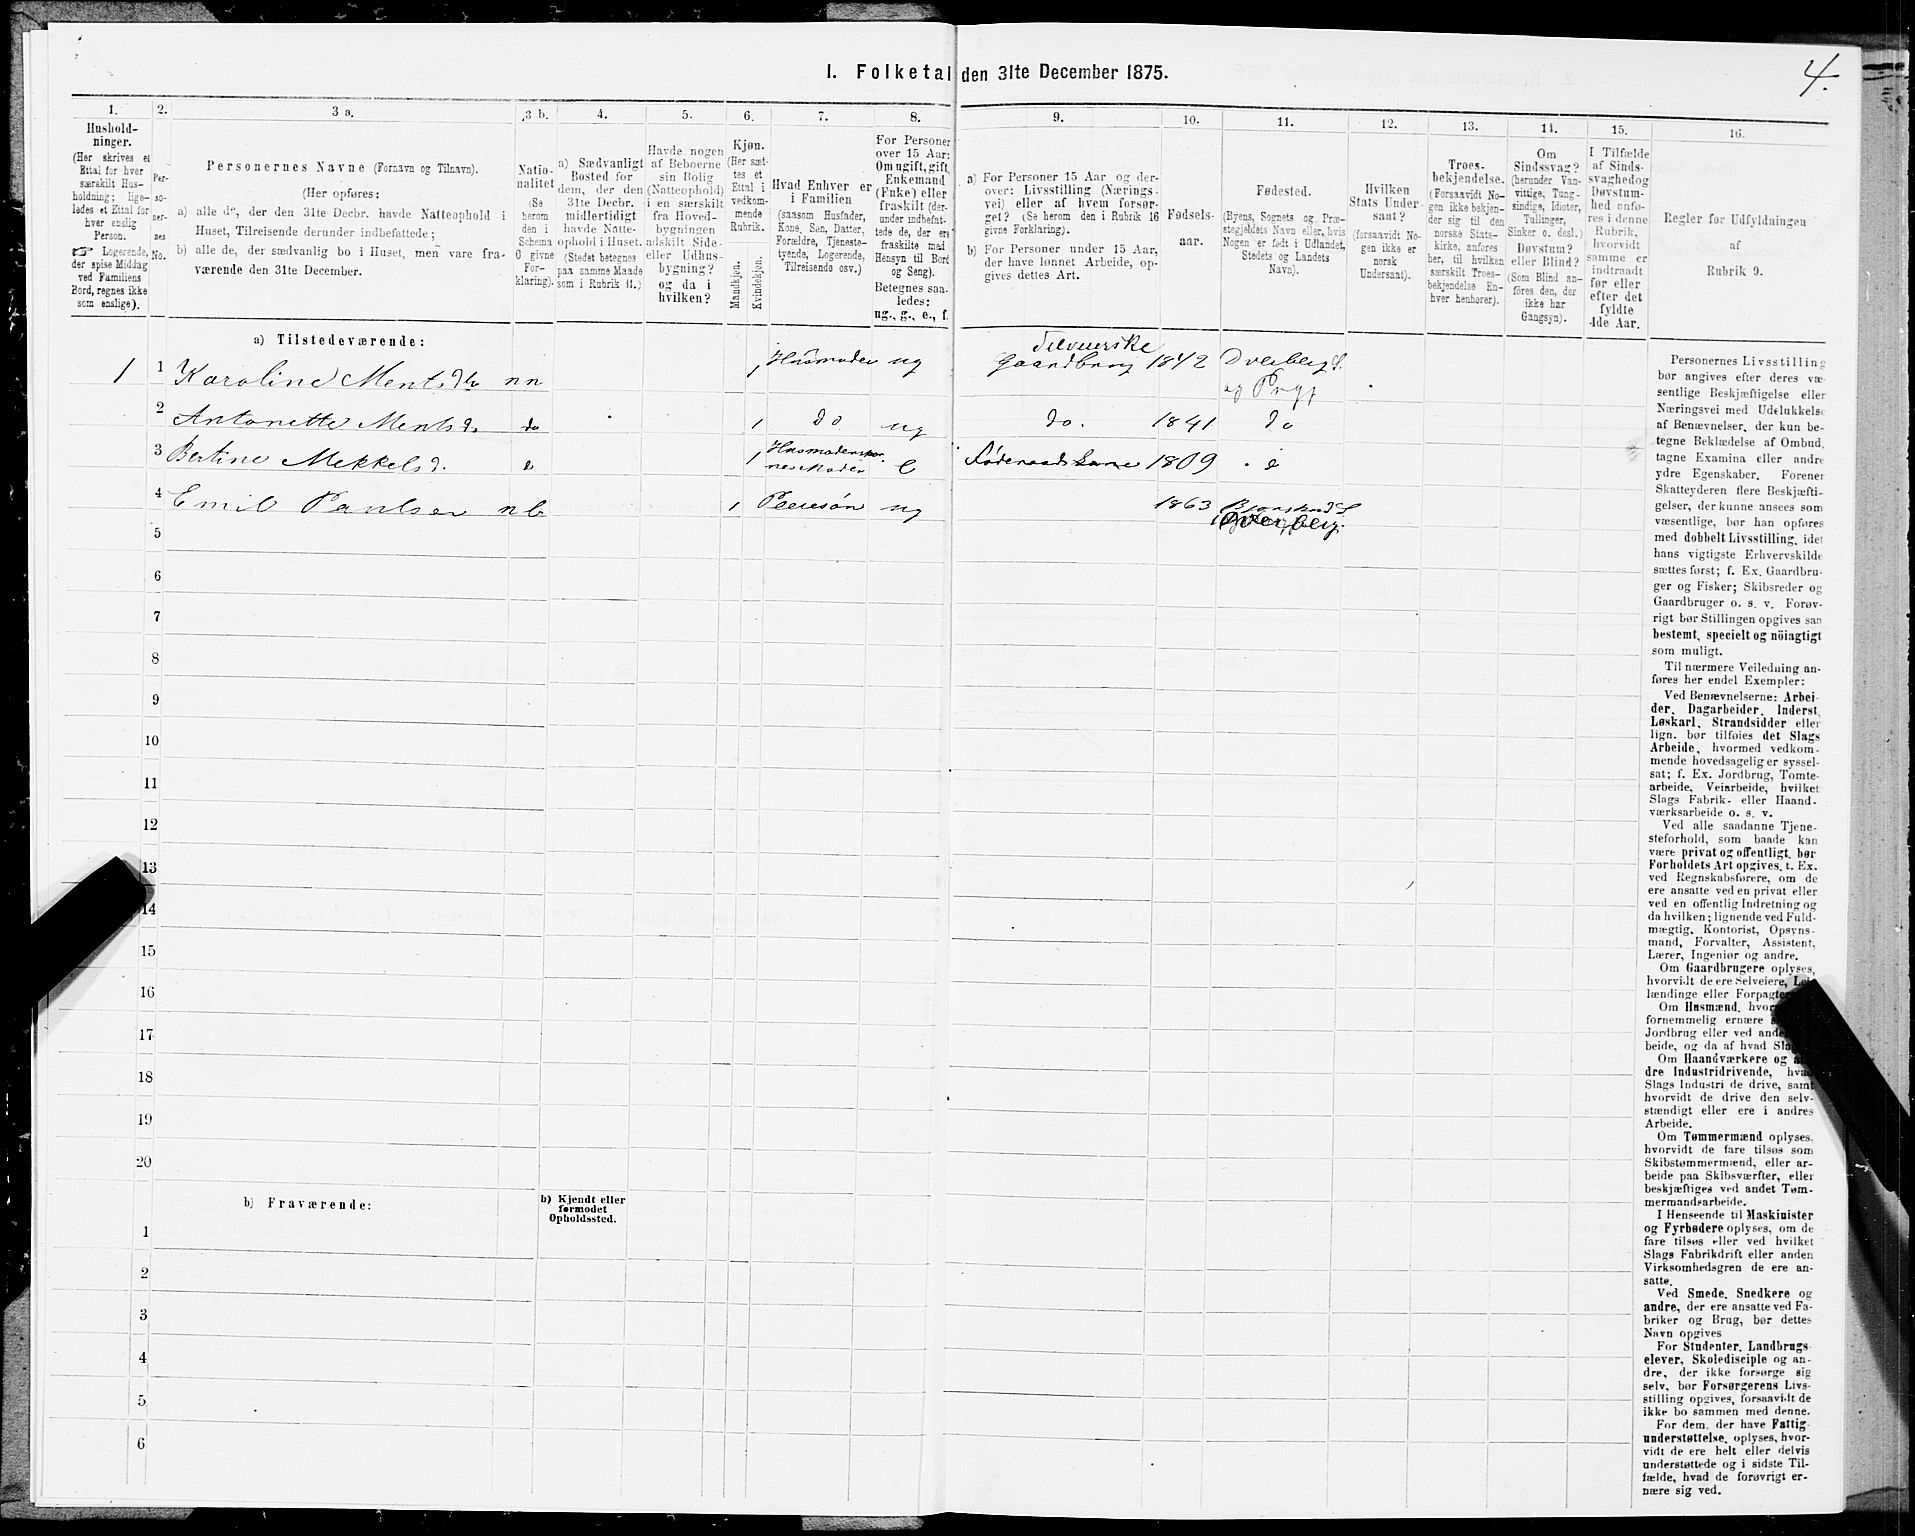 I. Folketal den 31te December 1875.
4.
1.
2.
3 a.
3 b.
4.
5.
6.
7.
8.
9.
10.
11.
12.
13.
14.
15.
16.
Hushold-
ninger.
(Her skrives et
Ettal for hver
særskilt Hus-
holdning; lige-
ledes et Ettal for
hver enslig
Person.
☞ Logerende,
der spise Middag
ved Familiens
Bord, regnes ikke
som enslige).
Per-
so-
ner-
nes
No.
Personernes Navne (Fornavn og Tilnavn).
(Her opføres:
a) alle de, der den 31te Decbr. havde Natteophold i
Huset, Tilreisende derunder indbefattede;
b) alle de, der sædvanlig bo i Huset, men vare fra-
værende den 31te December.
Natio-
nalitet
(Se
herom
den i
Schema
O givne
For-
klaring).
a) Sædvanligt
Bosted for
dem, der den
31te Decbr.
midlertidigt
havde Natte-
ophold i Huset.
(Stedet betegnes
paa samme Maade
som i Rubrik 11.)
Havde nogen
af Beboerne
sin Bolig
(Natteophold)
i en særskilt
fra Hoved-
bygningen
adskilt Side-
eller Udhus-
bygning?
og da i
hvilken?
Kjøn.
(Her sæt-
tes et
Ettal i
vedkom-
mende
Rubrik.
Mandkjøn.
Kvindekjøn.
Hvad Enhver er
i Familien
(saasom Husfader,
Kone, Søn, Datter,
Forældre, Tjeneste-
tyende, Logerende,
Tilreisende osv.)
For Personer
over 15 Aar:
Om ugift, gift,
Enkemand
(Enke) eller
fraskilt (der-
under indbefat-
tede de, der ere
fraskilte med
Hensyn til Bord
og Seng).
Betegnes saa-
ledes:
ug., g., e., f.
a) For Personer 15 Aar og der-
over: Livsstilling (Nærings-
vei) eller af hvem forsør-
get? (Se herom den i Rubrik 16
givne Forklaring).
b) For Personer under 15 Aar,
der have lønnet Arbeide, op-
gives dettes Art.
Fødsels-
aar.
Fødested.
(Byens, Sognets og Præ-
stegjeldets Navn eller, hvis
Nogen er født i Udlandet,
Stedets og Landets
Navn).
Hvilken
Stats Under-
saat?
(forsaavidt No-
gen ikke er
norsk
Undersaat).
Troes-
bekjendelse.
(Forsaavidt No-
gen ikke bekjen-
der sig til den
norske Stats-
kirke, anføres
her, til hvilken
særskilt Troes-
bekjendelse En-
hver henhører).
Om
Sindssvag?
(herunder Van-
vittige, Tung-
sindige, Idioter,
Tullinger,
Sinker o. desl.)
Døvstum?
eller Blind?
(Som Blind an-
føres den, der
ikke har
Gangsyn).
I Tilfælde
af Sinds-
svaghed og
Døvstum-
hed anfø-
res i denne
Rubrik,
hvorvidt
samme er
indtraadt
før eller
efter det
fyldte
4de Aar.
Regler for Udfyldningen
af
Rubrik 9.
a) Tilstedeværende:
1 1 Karoline Mentsdtr nn 1 Husmoder ug Selveierske Gaardbrug 1842 Dverberg S. og Prgj
2 Antonette Mentsd. do 1 do ug do. 1841 do
3 Bertine Mekkelsd. 1 Husmoderskernes Moder e Føderaadskone 1809
4 Emil Paulsen nb 1 Pleiesøn ug 1863 Bjørnskind S Dverberg.
5
6
7
8
9
10
11
12
13
14
15
16
17
18
19
20
b) Fraværende:
b) Kjendt eller
formodet
Opholdssted.
1
2
3
4
5
6
Personernes Livsstilling
bør angives efter deres væ-
sentlige Beskjæftigelse eller
Næringsvei med Udelukkelse
af Benævnelser, der kun be-
tegne Beklædelse af Ombud,
tagne Examina eller andre
ydre Egenskaber. Forener
Skatteyderen flere Beskjæfti-
gelser, der kunne ansees som
væsentlige, bør han opføres
med dobbelt Livsstilling, idet
hans vigtigste Erhvervskilde
sættes først; f. Ex. Gaardbru-
ger og Fisker; Skibsreder og
Gaardbruger o. s. v. Forøv-
rigt bør Stillingen opgives saa
bestemt, specielt og nöiagtigt
som muligt.
Til nærmere Veiledning an-
føres her endel Exempler:
Ved Benævnelserne: Arbei-
der, Dagarbeider, Inderst,
Løskarl, Strandsidder eller
lign. bør tilføies det Slags
Arbeide, hvormed vedkom-
mende hovedsagelig er syssel-
sat; f. Ex. Jordbrug, Tomte-
arbeide, Veiarbeide, hvilket
Slags Fabrik- eller Haand-
værksarbeide o. s. v.
Ved alle saadanne Tjene-
steforhold, som baade kan
være privat og offentligt, bør
Forholdets Art opgives, t. Ex.
ved Regnskabsførere, om de
ere ansatte ved en privat eller
ved en offentlig Indretning og
da hvilken; lignende ved Fuld-
mægtig, Kontorist, Opsyns-
mand, Forvalter, Assistent,
Lærer, Ingeniør og andre.
Om Gaardbrugere oplyses,
hvorvidt de ere Selveiere, Lei-
lændinge eller Forpagtere.
Om Husmænd, hvor
fornemmelig ernære
Jordbrug eller ved ande
beide, og da af hvad Sla
Om Haandværkere og an-
dre Industridrivende, hvad
Slags Industri de drive, samt
hvorvidt de drive den selv-
stændigt eller ere i andres
Arbeide.
Om Tømmermænd oplyses,
hvorvidt de fare tilsøs som
Skibstømmermænd, eller ar-
beide paa Skibsværfter, eller
beskjæftiges ved andet Tøm-
mermandsarbeide.
I Henseende til Maskinister
og Fyrbødere oplyses, om de
fare tilsøs eller ved hvilket
Slags Fabrikdrift eller anden
Virksomhedsgren de ere an-
satte.
Ved Smede, Snedkere og
andre, der ere ansatte ved Fa-
briker og Brug, bør dettes
Navn opgives
For Studenter, Landbrugs-
elever, Skoledisciple og an-
dre, der ikke forsørge sig
selv, bør Forsørgerens Livs-
stilling opgives, forsaavidt de
ikke bo sammen med denne.
For dem, der have Fattig-
understøttelse, oplyses, hvor-
vidt de ere helt eller delvis
understøttede og i sidste Til-
fælde, hvad de forøvrigt er-
nære sig ved.